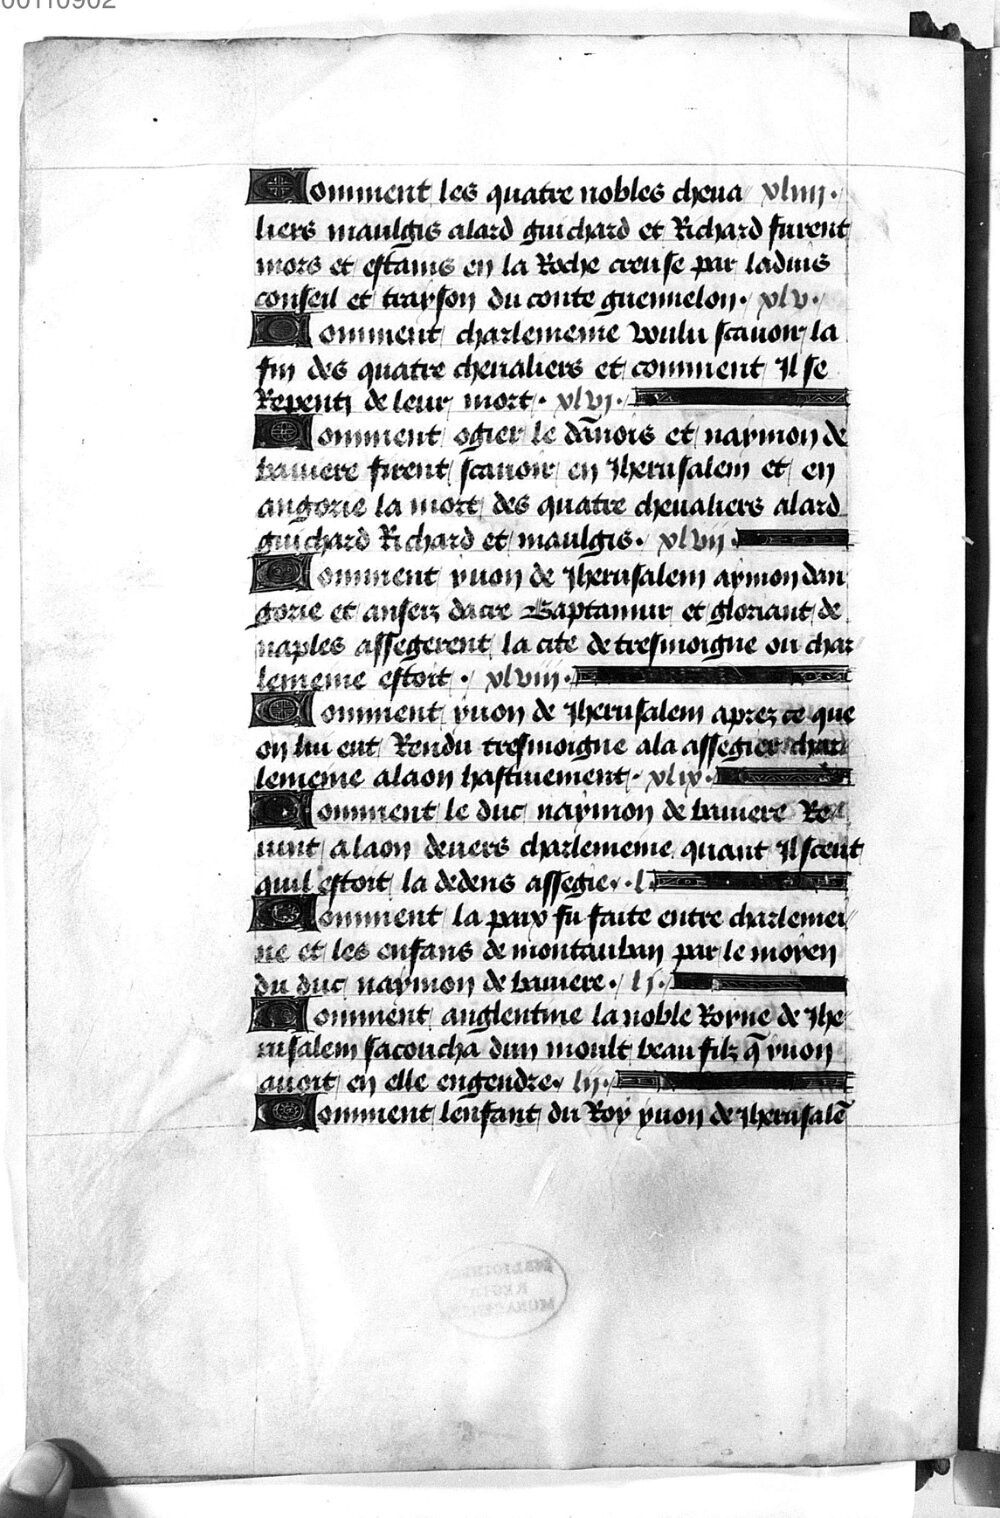 Comment les quatre nobles cheua xliiij.
liers maulgis alard guichard et Richard furent
mors et estains en la Roche creuse par laduis
conseil et trayson du conte guennelon. xlv.
Comment charlemeine voulu scauoir la
fin des quatre cheualiers et comment Il se
Repenti de leur mort. xlvj.
Comment ogier le dānois et naymon de
bauiere firent scauoir en Jherusalem et en
angorie la mort des quatre cheualiers alard
guichard Richard et maulgis. xlvij.
Comment yuon de Jherusalem aymon dan
gorie et anseis dacre Baptamur et gloriant de
naples assegerent la cite de tresmoigne ou char
lemeine estoit. xlviij.
Comment yuon de Jherusalem aprez ce que
on lui eut Rendu tresmoigne ala assegier char
lemeine a laon hastiuement. xlix.
Comment le duc naymon de bauiere Re
uint a laon deuers charlemeine quant Il sceut
quil estoit la dedens assegie. l.
Comment la paix fu faite entre charlemei
ne et les enfans de montauban par le moyen
du duc naymon de bauiere. lj.
Comment anglentine la noble Royne de Jhe
rusalem sacoucha dun moult beau filz q̄ yuon
auoit en elle engendre. lij.
Comment lenfant du Roy yuon de Jherusalē
BIBLIOTHECA
REGIA
MONACENSIS